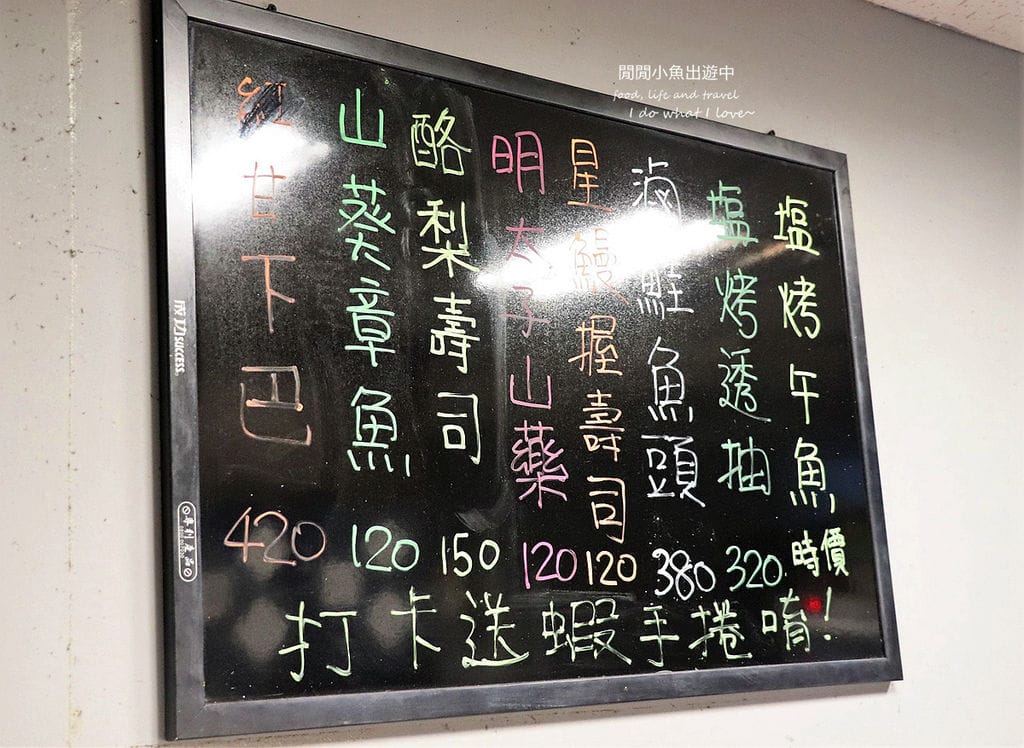 閒閒小魚出遊中
food, life and travel
I do what I love~
塩烤午魚 時價
塩烤透抽 320
滷鮭魚頭 380
星鰻握壽司 120
明太子山藥 120
酪梨壽司 150
山葵章魚 120
紅甘下巴 420
打卡送蝦手捲唷!
成功 SUCCESS.
專利產品